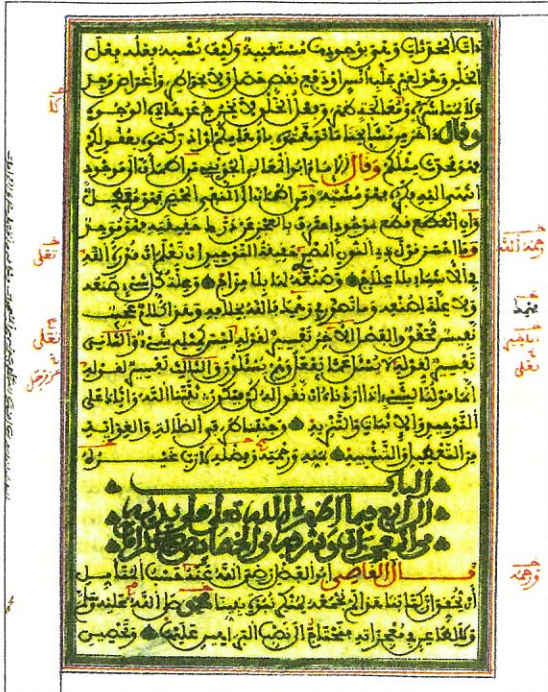 ذات المحدثات وهو بوجوده مستغن وكيف يشبه فعله فعل
الخلق وهو لغير جلب أنس أو دفع نقص حصل ولا بخواطر وأغراض وجد
ولا بمباشرة ومعالجة ظهر وفعل الخلق لا يخرج عن هذه الوجوه
وقال آخر من مشايخنا ما توهمتموه بأوهامكم أو أدركتموه بعقولكم
فهو محدث مثلكم وقال الإمام أبو المعالي الجويني من اطمأن إلى موجود
انتهى إليه فكره فهو مشبه ومن اطمأن إلى النفي المحض فهو معطل
وإن قطع بموجود اعترف بالعجز عن درك حقيقته فهو موحد
وما أحسن قول ذي النون المصري حقيقة التوحيد أن تعلم أن قدرة الله
في الأشياء بلا علاج وصنعه لها بلا مزاج وعلة كل شيء صنعه
ولا علة لصنعه وما تصور في وهمك فالله بخلافه وهذا كلام عجيب
نفيس محقق والفصل الآخر تفسير لقوله ليس كمثله شيء والثاني
تفسير لقوله لا يسأل عما يفعل وهم يسألون والثالث تفسير لقوله
إنما قولنا لشيء إذا أردناه أن نقول له كن فيكون ثبتنا الله وإياك على
التوحيد والإثبات والتنزيه وجنبنا طرفي الضلالة والغواية
من التعطيل والتشبيه بمنه ورحمته
الباب
الرابع فيما أظهره الله تعالى على يديه
من المعجزات وشرفه به من الخصائص والكرامات
قال القاضي أبو الفضل رضي الله عنه حسب المتأمل
أن يحقق أن كتابنا هذا لم نجمعه لمنكر نبوة نبينا صلى الله عليه وسلم
ولا لطاعن في معجزاته فنحتاج إلى نصب البراهين عليها وتحصين
رحمه الله
تعلى
تعلى
عز وجل
تعلى
ورحمته